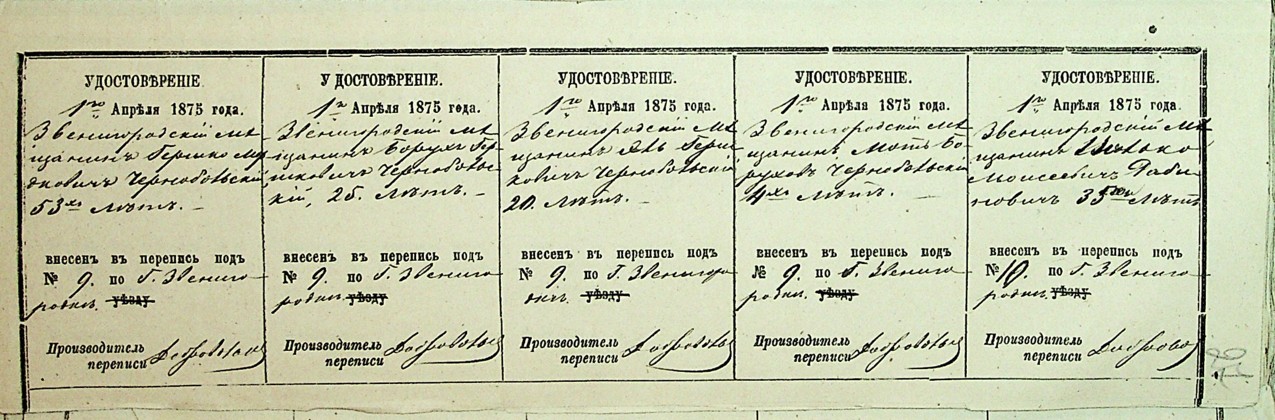 УДОСТОВѢРЕНІЕ
1го Апрѣля 1875 года.
Звенигородскій мѣ
щанинъ Гершко
Чернобольскій
53хъ лѣтъ. —
внесенъ въ перепись подъ
№ 9. по г. Звениго
родкѣ. уѣзду
Производитель
переписи
УДОСТОВѢРЕНІЕ.
1го Апрѣля 1875 года.
Звенигородскій мѣ
щанинъ Борухъ Гер
шковичъ Черноболь
скій, 25. лѣтъ. —
внесенъ въ перепись подъ
№ 9. по г. Звениго
родкѣ. уѣзду
Производитель
переписи
УДОСТОВѢРЕНІЕ.
1го Апрѣля 1875 года.
Звенигородскій мѣ
щанинъ Герш
ковичъ Чернобольскій
20. лѣтъ. —
внесенъ въ перепись подъ
№ 9. по г. Звенигоро
дкѣ. уѣзду
Производитель
переписи
УДОСТОВѢРЕНІЕ.
1го Апрѣля 1875 года.
Звенигородскій мѣ
щанинъ Мотъ Бо
руховъ Чернобольскій
4хъ лѣтъ.
внесенъ въ перепись подъ
№ 9. по г. Звениго
родкѣ. уѣзду
Производитель
переписи
УДОСТОВѢРЕНІЕ.
1го Апрѣля 1875 года.
Звенигородскій мѣ
щанинъ
Моисеевичъ Раби
новичъ 35 лѣтъ
внесенъ въ перепись подъ
№ 10. по г. Звениго
родкѣ. уѣзду
Производитель
переписи